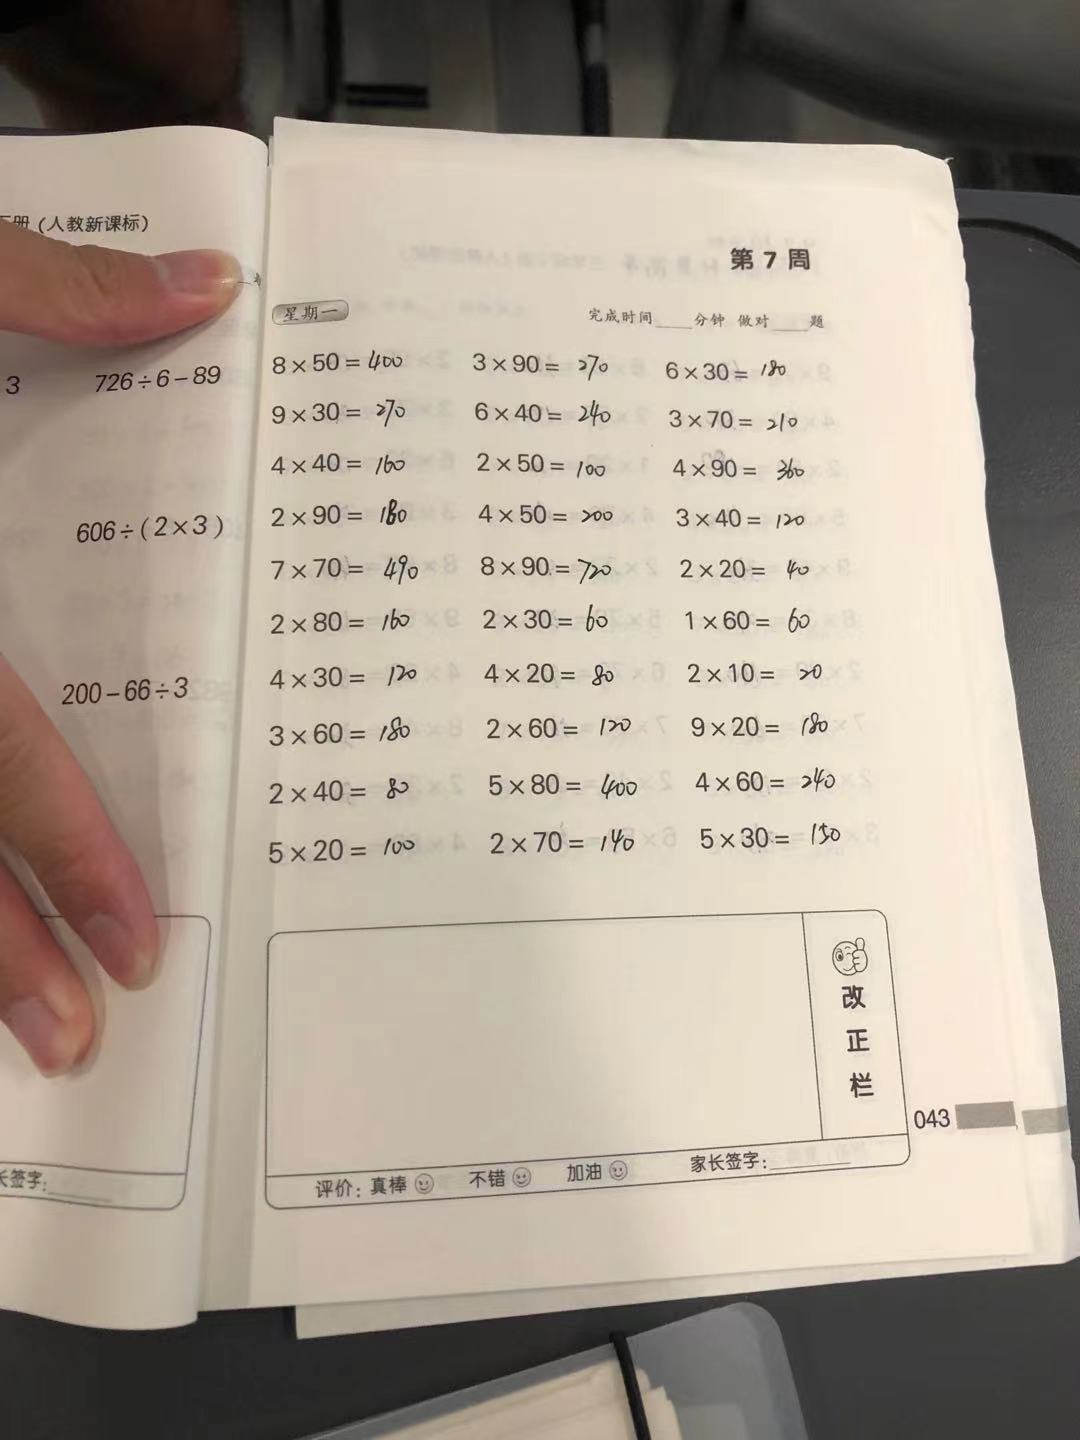 下册（人教新课标）
3 726÷6－89
606÷(2×3)
200－66÷3
长签字:
第 7 周
星期一 完成时间____分钟 做对____题
8×50=400 3×90=270 6×30=180
9×30=270 6×40=240 3×70=210
4×40=160 2×50=100 4×90=360
2×90=180 4×50=200 3×40=120
7×70=490 8×90=720 2×20=40
2×80=160 2×30=60 1×60=60
4×30=120 4×20=80 2×10=20
3×60=180 2×60=120 9×20=180
2×40=80 5×80=400 4×60=240
5×20=100 2×70=140 5×30=150
改正栏
043
评价：真棒 不错 加油 家长签字: